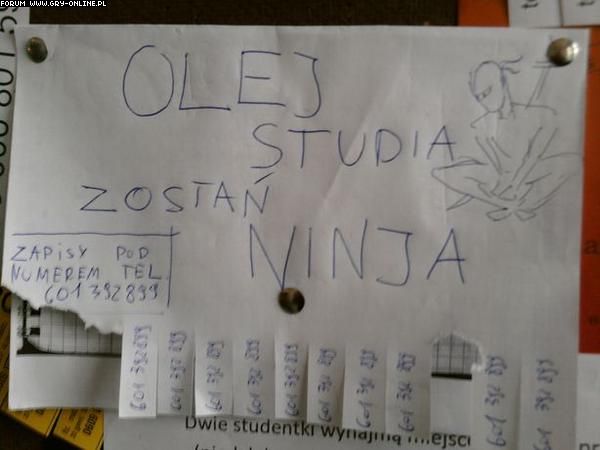 FORUM WWW.GRY-ONLINE.PL
OLEJ
STUDIA
ZOSTAŃ
NINJA
ZAPISY POD
NUMEREM TEL.
601 392 899
601 392 899
601 392 899
601 392 899
601 392 899
601 392 899
601 392 899
601 392 899
601 392 899
601 392 899
601 392 899
Dwie studentki wynajmą miejsc